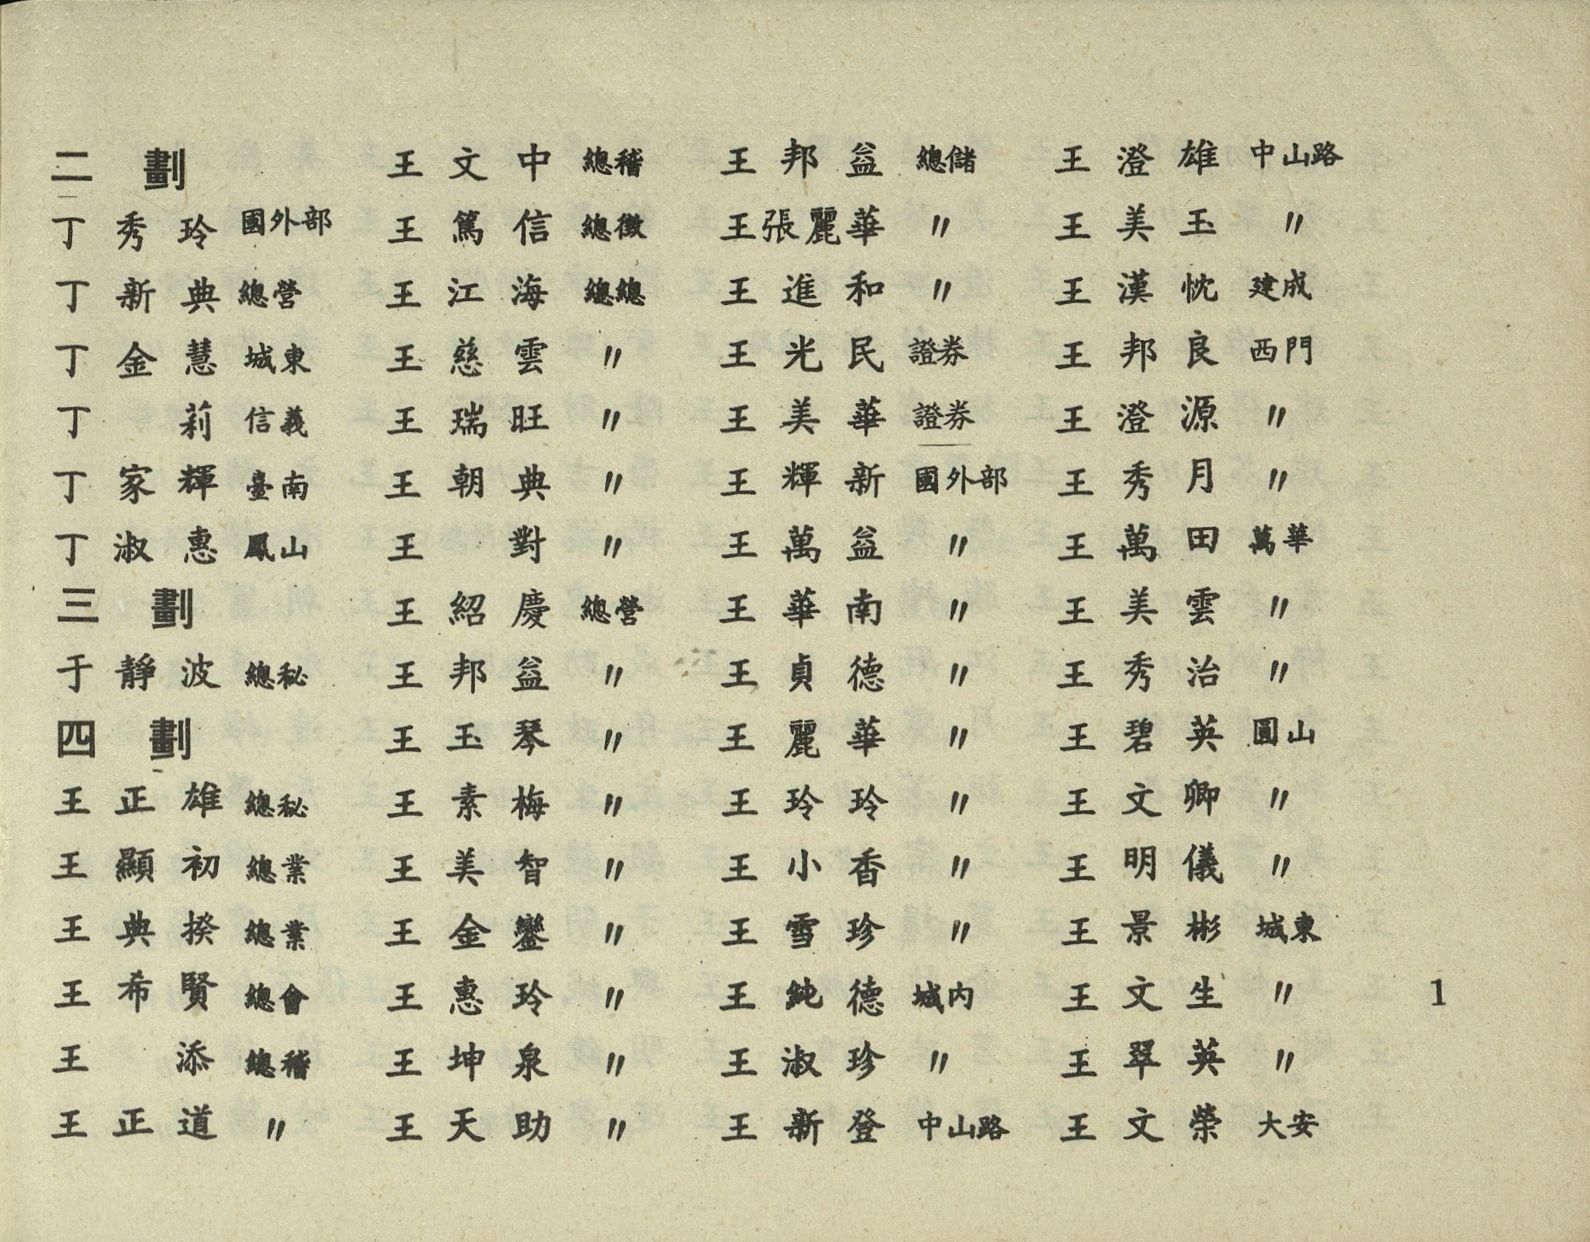 二劃
丁秀玲 國外部
丁新典 總營
丁金慧 城東
丁莉 信義
丁家輝 臺南
丁淑惠 鳳山
三劃
于靜波 總秘
四劃
王正雄 總秘
王顯初 總業
王典揆 總業
王希賢 總會
王添 總稽
王正道 〃
王文中 總稽
王篤信 總徵
王江海 總總
王慈雲 〃
王瑞旺 〃
王朝典 〃
王對 〃
王紹慶 總營
王邦益 〃
王玉琴 〃
王素梅 〃
王美智 〃
王金鑾 〃
王惠玲 〃
王坤泉 〃
王天助 〃
王邦益 總儲
王張麗華 〃
王進和 〃
王光民 證券
王美華 證券
王輝新 國外部
王萬益 〃
王華南 〃
王貞德 〃
王麗華 〃
王玲玲 〃
王小香 〃
王雪珍 〃
王純德 城內
王淑珍 〃
王新登 中山路
王澄雄 中山路
王美玉 〃
王漢忱 建成
王邦良 西門
王澄源 〃
王秀月 〃
王萬田 萬華
王美雲 〃
王秀治 〃
王碧英 圓山
王文卿 〃
王明儀 〃
王景彬 城東
王文生 〃
王翠英 〃
王文榮 大安
1